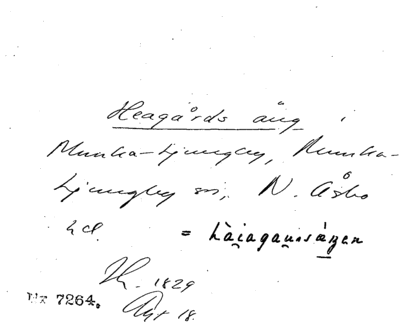 Heagårds äng i
Munka-Ljungby, Munka-
Ljungby sn, N. Åsbo
hd. =
1829
Nr 7264. 18.